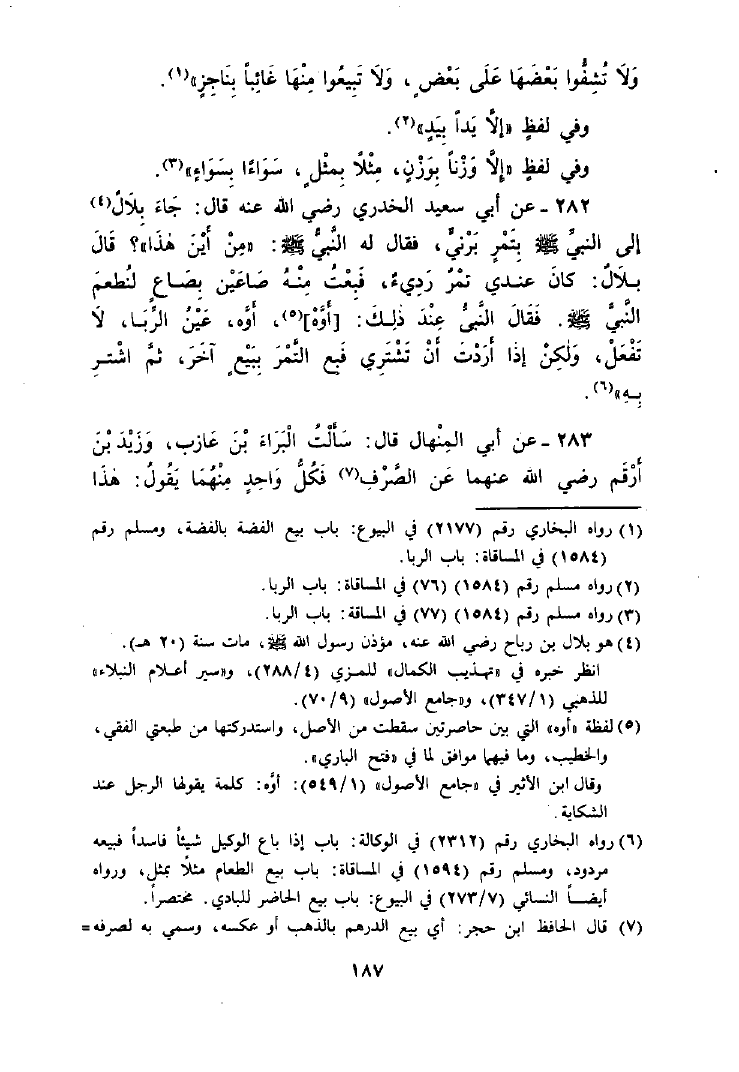 وَلَا تُشِفُّوا بَعْضَهَا عَلَى بَعْضٍ ، وَلَا تَبِيعُوا مِنْهَا غَائِباً بِنَاجِزٍ»(١).
وفي لفظٍ «إِلَّا يَداً بِيَدٍ»(٢).
وفي لفظٍ «إِلَّا وَزْناً بِوَزْنٍ، مِثْلًا بِمثْلٍ ، سَوَاءًا بِسَوَاءٍ»(٣).
٢٨٢ - عن أبي سعيد الخدري رضي الله عنه قال: جَاءَ بِلَالٌ(٤)
إلى النبيِّ ﷺ بِتَمْرٍ بَرْنِيٍّ، فقال له النَّبيُّ ﷺ: «مِنْ أَيْنَ هٰذَا»؟ قَالَ
بِلَالٌ: كانَ عندي تمْرٌ رَدِيءٌ، فَبِعْتُ مِنْهُ صَاعَيْن بِصَاعٍ لنُطعمَ
النَّبيَّ ﷺ . فَقَالَ النَّبيُّ عِنْدَ ذٰلِكَ: [أَوَّهْ](٥)، أَوَّه، عَيْنُ الرِّبَا، لَا
تَفْعَلْ، وَلٰكِنْ إِذَا أَرَدْتَ أَنْ تَشْتَرِي فَبِع التَّمْرَ بِبَيْعٍ آخَرَ، ثمَّ اشْتَرِ
بِهِ»(٦).
٢٨٣ - عن أبي المِنْهال قال: سَأَلْتُ الْبَرَاءَ بْنَ عَازِب، وَزَيْدَ بْنَ
أَرْقَم رضي الله عنهما عَن الصَّرْفِ(٧) فَكُلُّ وَاحِدٍ مِنْهُمَا يَقُولُ: هٰذَا
(١) رواه البخاري رقم (٢١٧٧) في البيوع: باب بيع الفضة بالفضة، ومسلم رقم
(١٥٨٤) في المساقاة: باب الربا.
(٢) رواه مسلم رقم (١٥٨٤) (٧٦) في المساقاة: باب الربا.
(٣) رواه مسلم رقم (١٥٨٤) (٧٧) في المساقة: باب الربا.
(٤) هو بلال بن رباح رضي الله عنه، مؤذن رسول الله ﷺ، مات سنة (٢٠ هـ).
انظر خبره في «تهذيب الكمال» للمزي (٢٨٨/٤)، و«سير أعلام النبلاء»
للذهبي (٣٤٧/١)، و«جامع الأصول» (٧٠/٩).
(٥) لفظة «أوه» التي بين حاصرتين سقطت من الأصل، واستدركتها من طبعتي الفقي،
والخطيب، وما فيهما موافق لما في «فتح الباري».
وقال ابن الأثير في «جامع الأصول» (٥٤٩/١): أوَّه: كلمة يقولها الرجل عند
الشكاية .
(٦) رواه البخاري رقم (٢٣١٢) في الوكالة: باب إذا باع الوكيل شيئاً فاسداً فبيعه
مردود، ومسلم رقم (١٥٩٤) في المساقاة: باب بيع الطعام مثلًا بمثل، ورواه
أيضاً النسائي (٢٧٣/٧) في البيوع: باب بيع الحاضر للبادي. مختصراً.
(٧) قال الحافظ ابن حجر: أي بيع الدرهم بالذهب أو عكسه، وسمي به لصرفه=
١٨٧